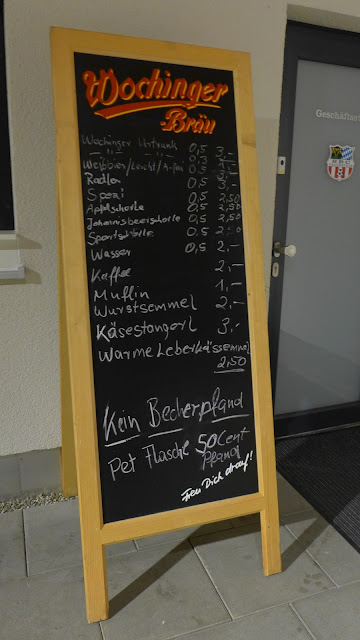 Wochinger
Bräu
Wochinger Urtrunk 0,5 3,-
Weißbier/Leicht/ 0,5 3,-
Radler 0,5 3,-
Spezi 0,5 2,50
Apfelschorle 0,5 2,50
Johannisbeerschorle 0,5 2,50
Sportschorle 0,5 2,-
Wasser 0,5 2,-
Kaffee 2,-
Muffin 1,-
Wurstsemmel 2,-
Käsestangerl 3,-
Warme Leberkässemmel
2,50
Kein Becherpfand
Pet Flasche 50 Cent
Pfand
Freu Dich drauf!